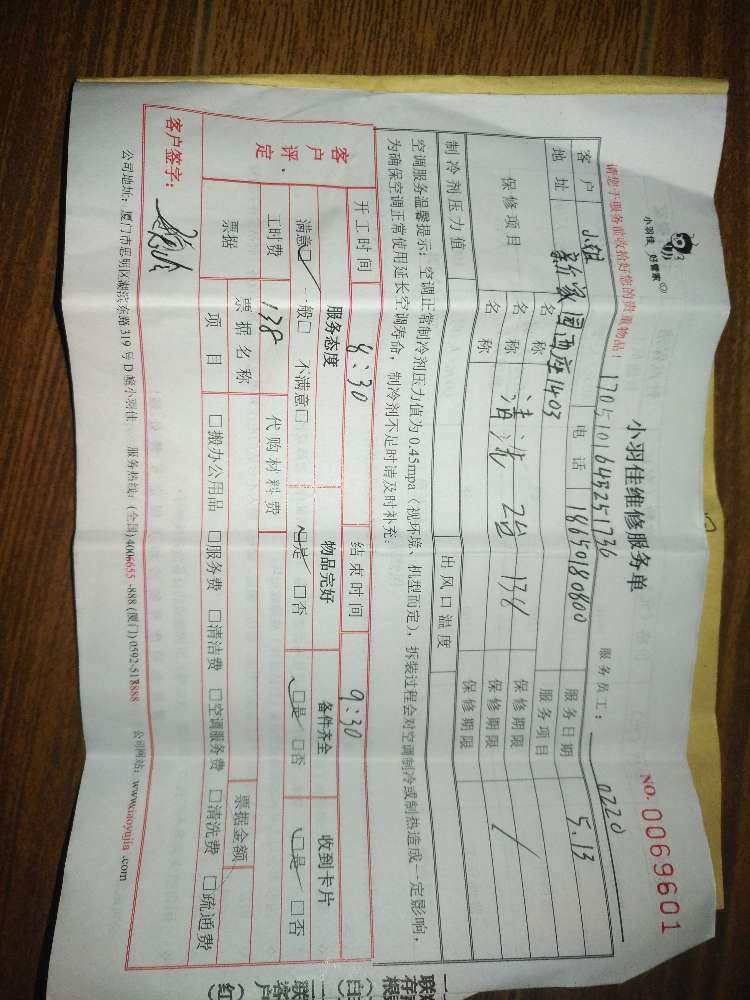 小羽佳 好管家
小羽佳维修服务单
NO. 0069601
请您于服务前收拾好您的贵重物品!
1705101648251736
服务员工: 0220
客户 小姐 电话 18650180800 服务日期 5.13
地址 新家园西座1403 服务项目
保修项目 名称 保修期限
名称 清洗 2台 138 保修期限 /
名称 保修期限
制冷剂压力值 出风口温度
空调服务温馨提示: 空调正常制冷剂压力值为0.45mpa (视环境、机型而定), 拆装过程会对空调制冷或制热造成一定影响,
为确保空调正常使用延长空调寿命, 制冷剂不足时请及时补充.
客户评定
开工时间 8:30 结束时间 9:30
服务态度 物品完好 备件齐全 收到卡片
满意□ 一般□ 不满意□ □是 □否 □是 □否 □是 □否
工时费 138 代购材料费
票据 票据名称 票据金额
项目 □搬办公用品 □服务费 □清洁费 □空调服务费 □清洗费 □疏通费
客户签字:
公司地址: 厦门市思明区湖滨东路319号D幢小羽佳 服务热线: (全国)4006655-888 (厦门)0592-518888 公司网站: www.xiaoyujia.com
存根(白)
二联客户(红)